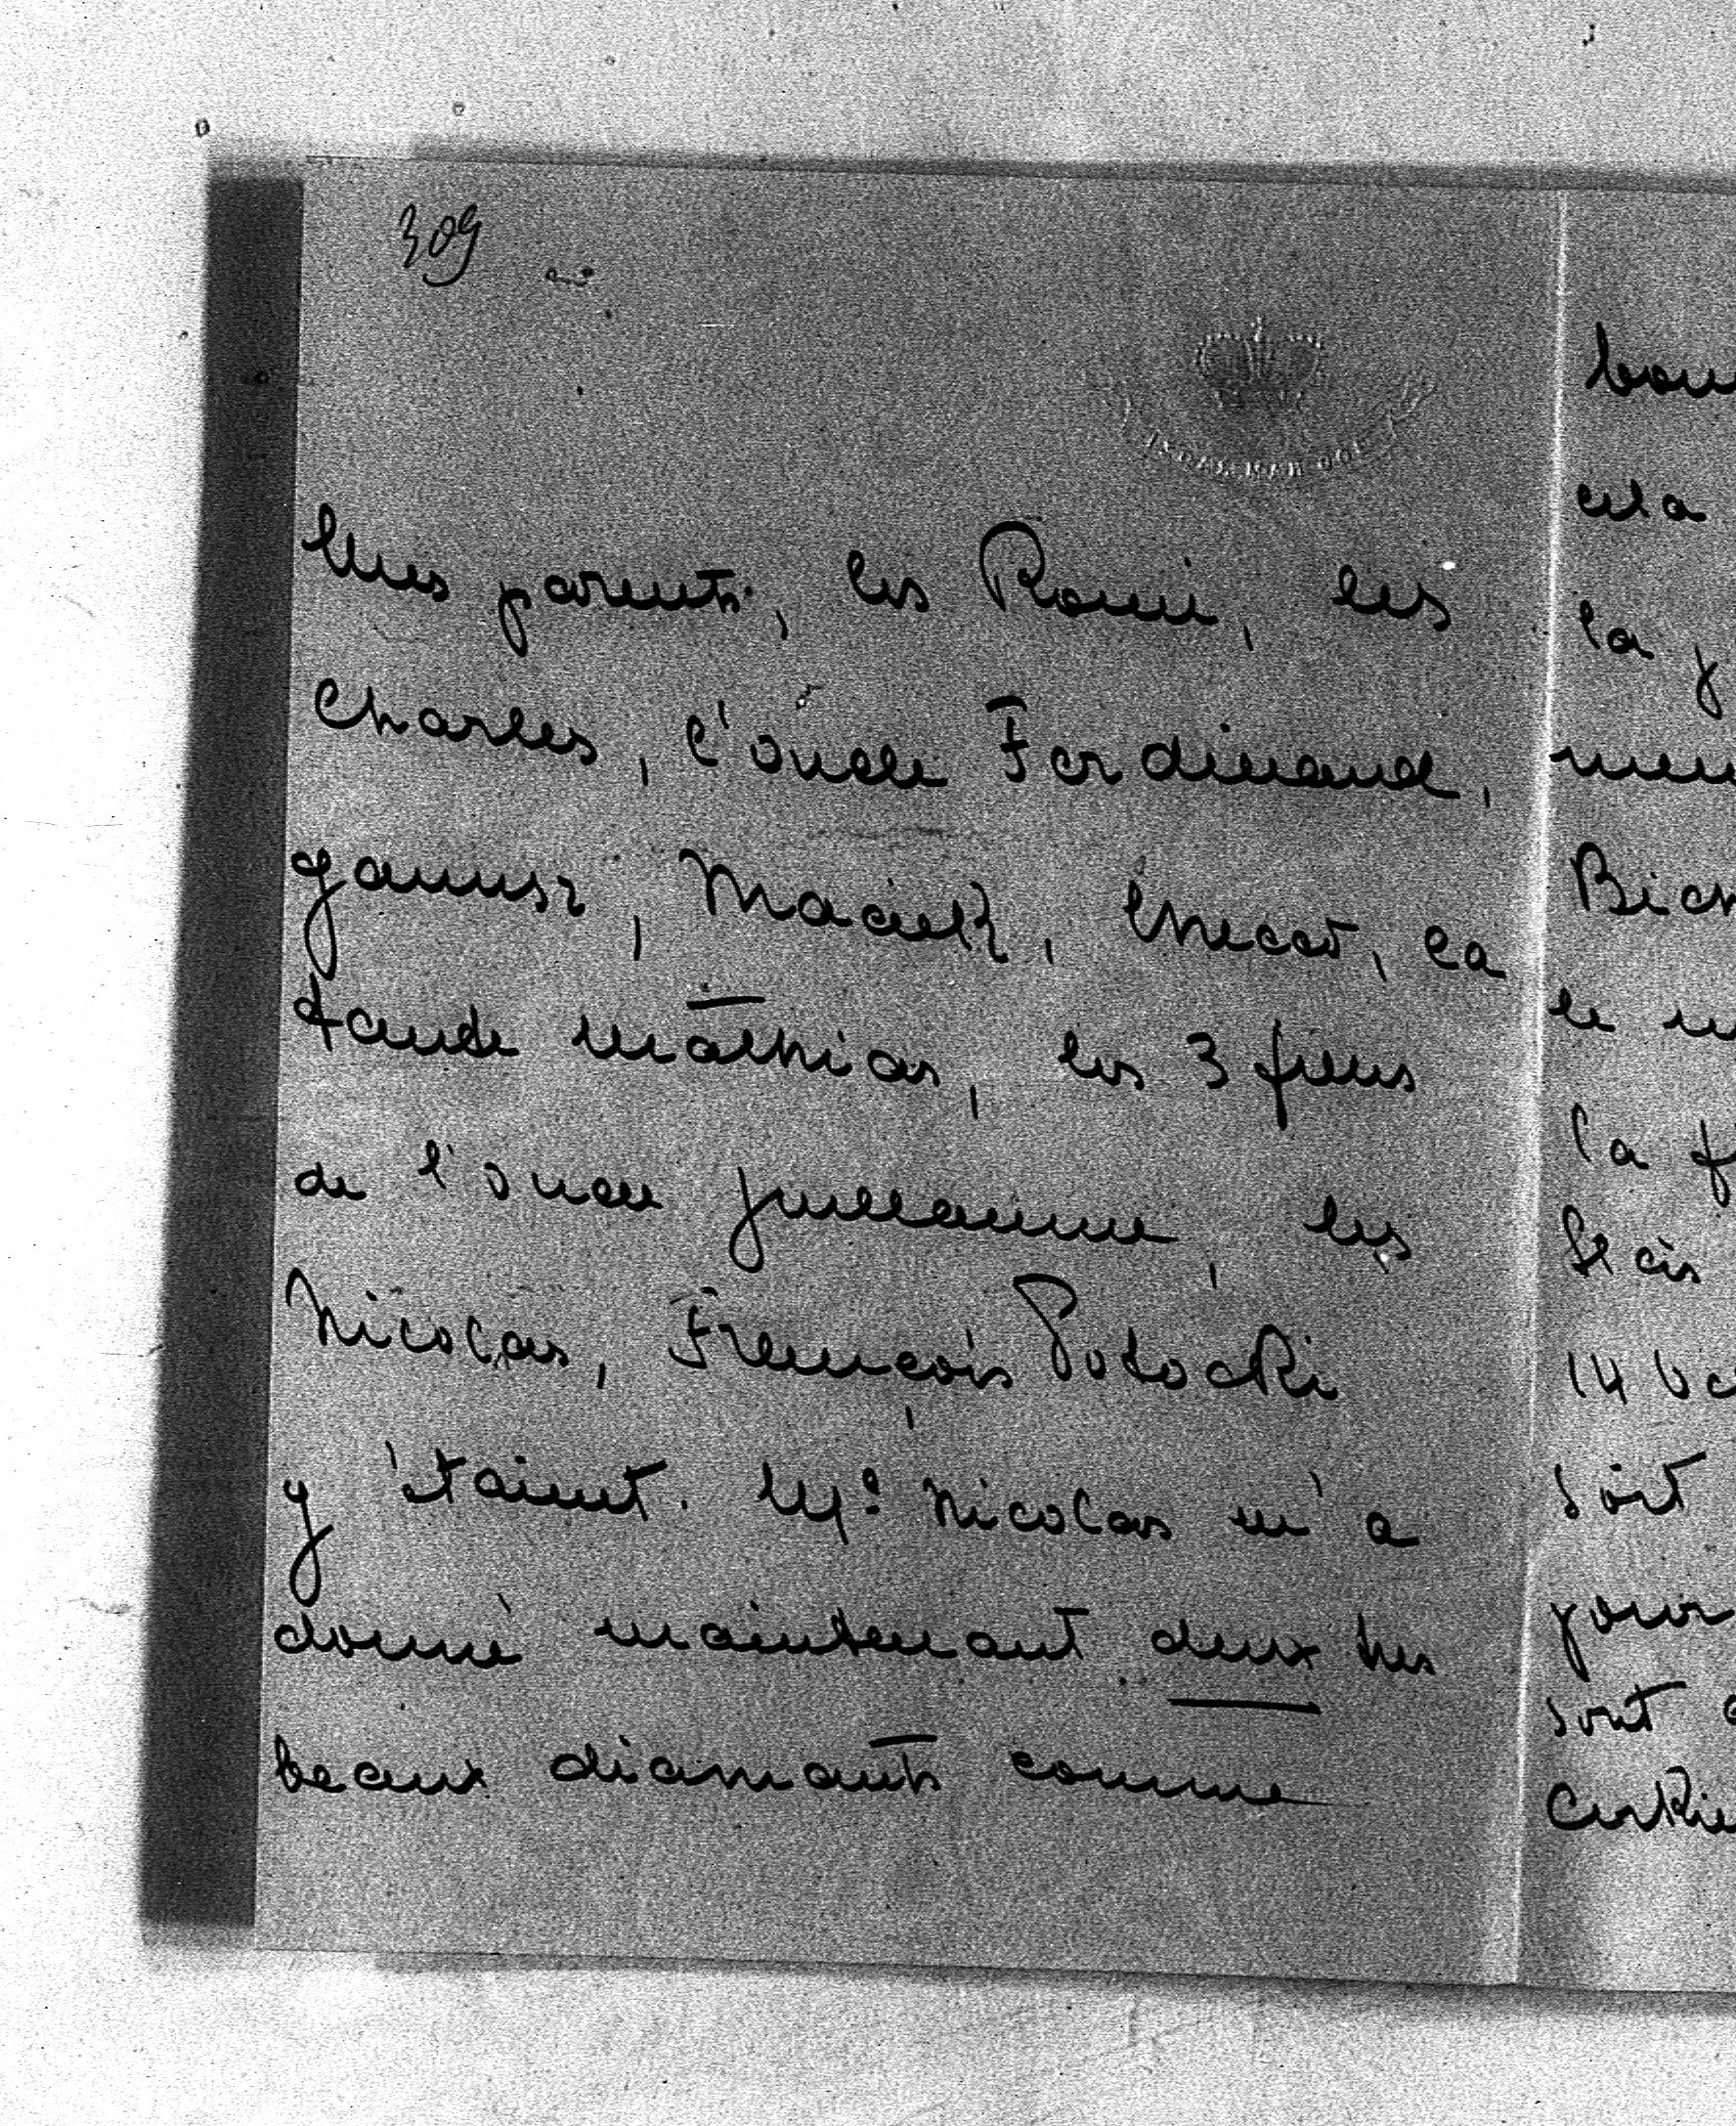 309
Mes parents, les Romi, les
Charles, l'oncle Ferdinand,
Janusz, Maciek, la
tante Mathias, les 3 fils
de l'oncle Guillaume, les
Nicolas, François Potocki
y étaient. Mr Nicolas m'a
donné maintenant deux tres
beaux diamants comme
cela
la
le
la
14
sont
pour
sont